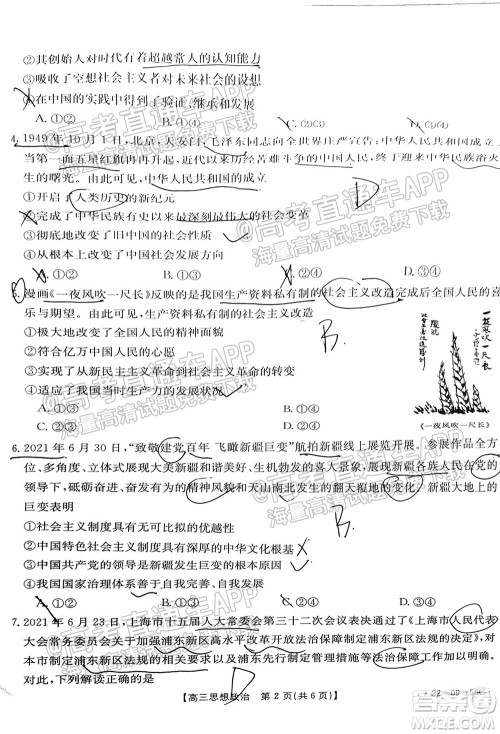 ②其创始人对时代有着超越常人的认知能力
③吸收了空想社会主义者对未来社会的设想
④在中国的实践中得到了验证、继承和发展
A.①② B.①③ C.②④ D.③④
4.1949年10月1日,北京,天安门,毛泽东同志向全世界庄严宣告:中华人民共和国成立
当第一面五星红旗冉冉升起,近代以来历经苦难斗争的中华民族,终于迎来中华民族浴火
生的曙光。由此可见,中华人民共和国的成立
①开启了人类历史的新纪元
②完成了中华民族有史以来最深刻最伟大的社会变革
③彻底结束了旧中国的屈辱外交
④从根本上改变了中国社会的发展方向
A.①② B.①③ C.②④ D.③④
D
5.漫画《一夜风吹一尺长》反映的是我国生产资料私有制的社会主义改造完成后全国人民的喜
乐与期望。由此可见,生产资料私有制的社会主义改造
①培育了中国人民的革命精神
②符合亿万中国人民的心愿
③实现了从新民主主义革命到社会主义革命的转变
④适应了我国当时生产力的发展状况
A.①③ B.②④ C.①② D.③④
B.
一夜风吹一尺长
《一夜风吹一尺长》
6.2021年6月30日,“致敬建党百年 飞瞰新疆巨变”航拍新疆线上展览开展。参展作品全方
位、多角度、立体式展现大美新疆社会和谐、人民幸福的喜人景象,展现新疆各族人民在党的
领导下,砥砺前行、团结奋进的精神风貌和天山南北发生的翻天覆地的变化。新疆大地上的
巨变表明
①社会主义制度具有无可比拟的优越性
②中国特色社会主义制度具有深厚的中华文化根基
③中国共产党的领导是新疆发生巨变的根本原因
④我国国家治理体系已具有完备形态
A.①② B.①③ C.②④ D.③④
B.
7.2021年6月23日,上海市十五届人大常委会第三十二次会议表决通过了《上海市人民代表
大会常务委员会关于加强浦东新区高水平改革开放法治保障制定浦东新区法规的决定》,
对本市制定浦东新区法规的相关工作作出规定,为浦东新区大胆试、大胆闯提供了法治保
障。对此,下列解释正确的是
【高三思想政治 第2页(共6页)】
高考直通车APP
海量高清试题免费下载